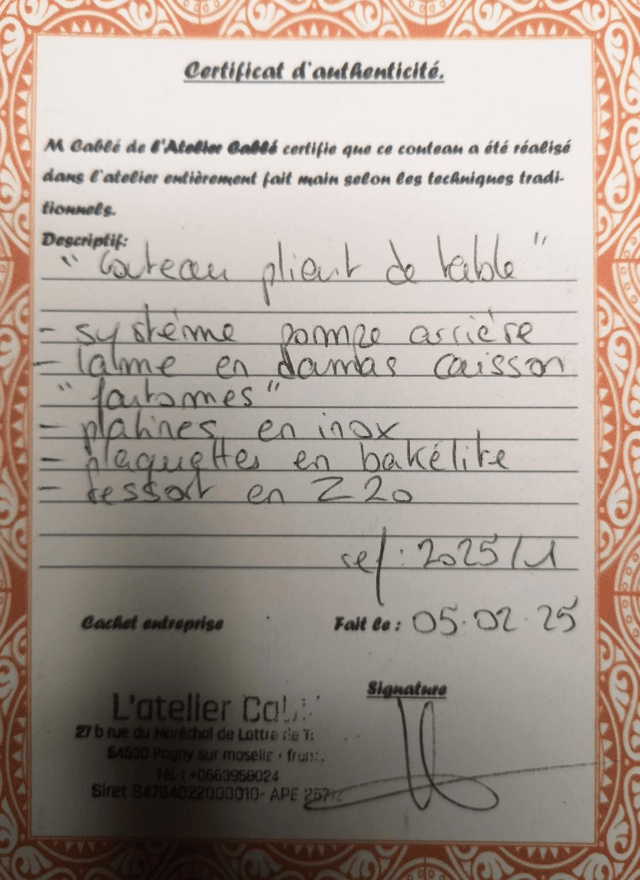 Certificat d'authenticité.
M Cablé de l'Atelier Cablé certifie que ce couteau a été réalisé
dans l'atelier entièrement fait main selon les techniques tradi-
tionnels.
Descriptif:
"Couteau pliant de table"
- système pompe arrière
- lame en damas caisson
"fantomes"
- platines en inox
- plaquettes en bakélite
- ressort en Z20
ref : 2025/1
Cachet entreprise
Fait le : 05.02.25
Signature
L'atelier
27 b rue du Maréchal de Lattre de
54530 Pagny sur moselle -
Tél. : +0663958024
Siret 84784022000010- APE